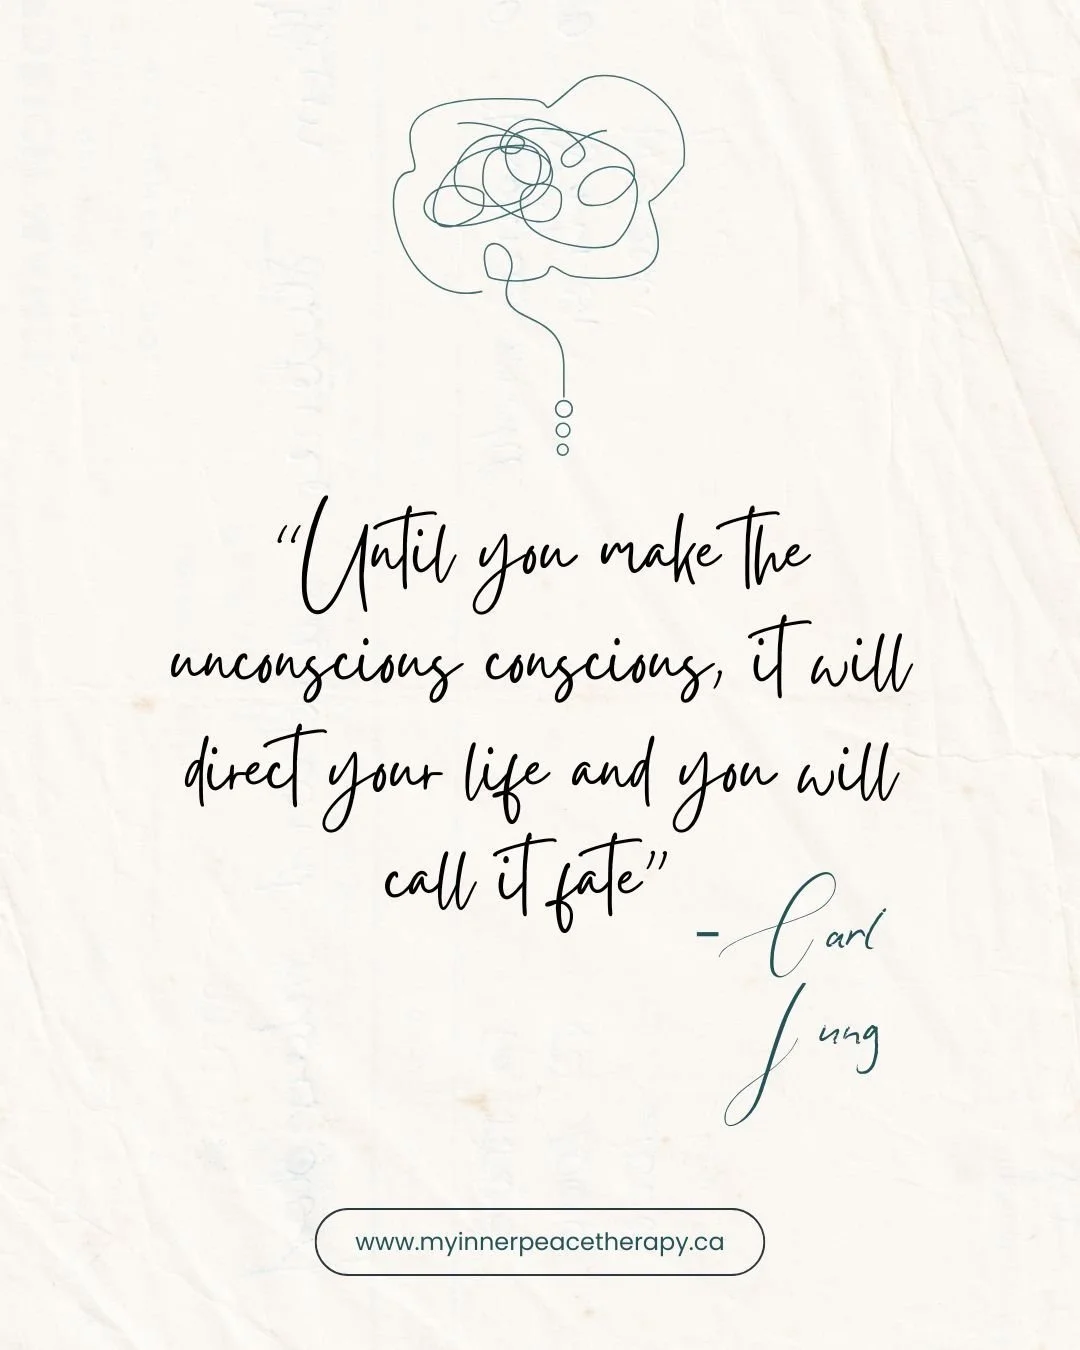 “Until you make the
unconscious conscious, it will
direct your life and you will
call it fate”
- Carl
Jung
www.myinnerpeacetherapy.ca